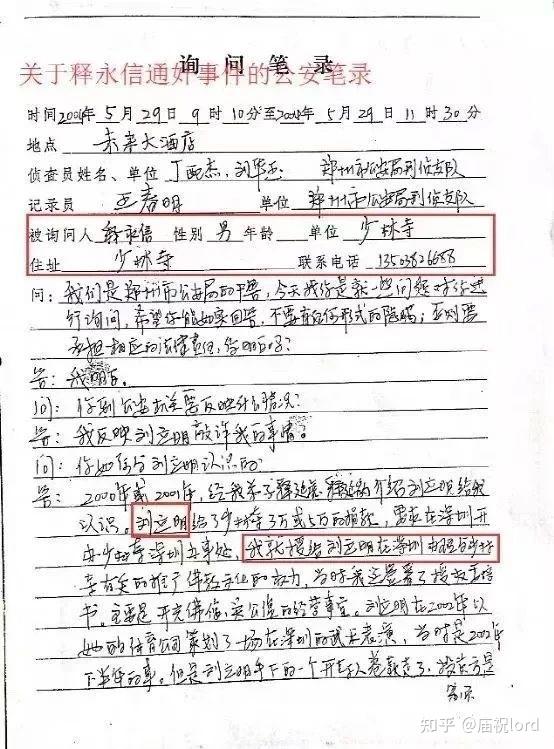 询问笔录
关于释永信通奸事件的公安笔录
时间2004年5月29日9时10分至2004年5月29日11时30分
地点 未来大酒店
侦查员姓名、单位 丁配杰、刘华 郑州市公安局刑侦支队
记录员 王春明 单位 郑州市公安局刑侦支队
被询问人 释永信 性别 男 年龄 单位 少林寺
住址 少林寺 联系电话
问:我们是郑州市公安局的干警,今天找你是就一些问题对你进
行询问,希望你能如实回答,不要有任何形式的隐瞒;否则要
承担相应的法律责任,你明白吗?
答:我明白。
问:你到公安机关要反映什么情况?
答:我反映刘立明敲诈我的事情。
问:你如何与刘立明认识的
答:2000年或2001年,经我弟子释延 介绍刘立明给我
认识。刘立明给了少林寺3万或5万的捐款,要求在深圳开
办少林寺深圳办事处,我就授给刘立明在深圳办理与少林
寺有关的推广佛教文化的权力,当时我还签署了授权委托
书。主要是开光佛像,实公益的经营事宜。刘立明在2002年以
她的体育公司策划了一场在深圳的武术表演,当时是2002年
下半年的事。但是刘立明手下的一个开车人卷款走了,投资方是
知乎 @庙祝lord